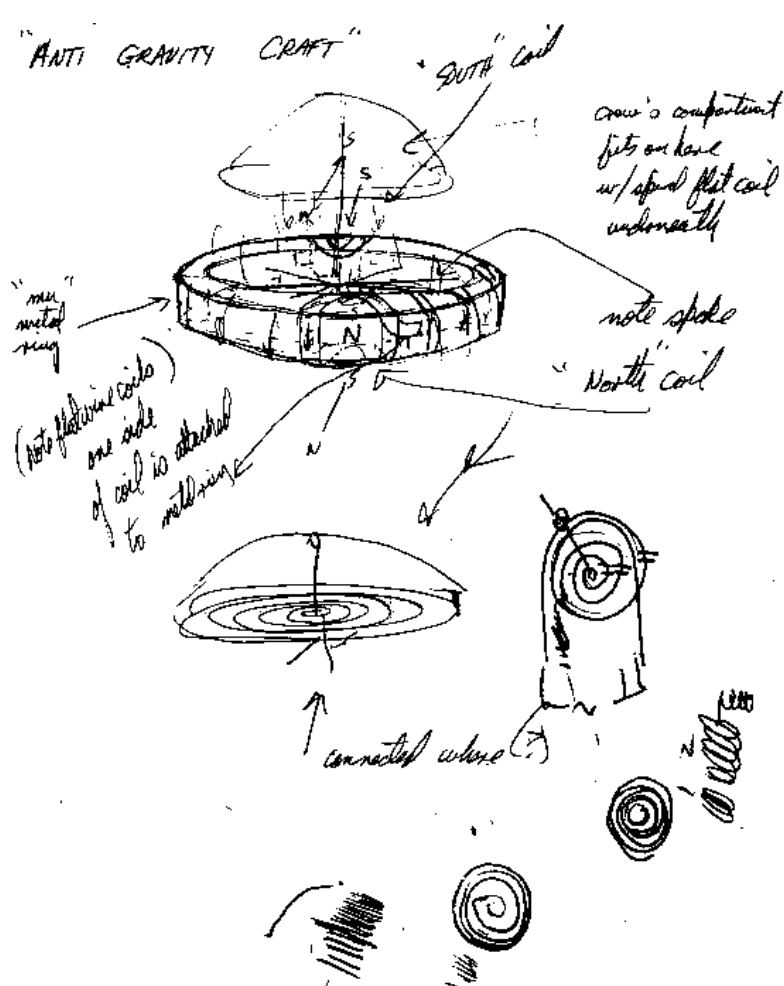 "ANTI GRAVITY CRAFT"
"SOUTH" coil
crew's compartment
fits on here
w/ spiral flat coil
underneath
"mu"
metal
ring
note spoke
"North" coil
(note flat wire coils)
one side
of coil is attached
to metal ring
S
S
N
N
S
N
connected where (?)
N